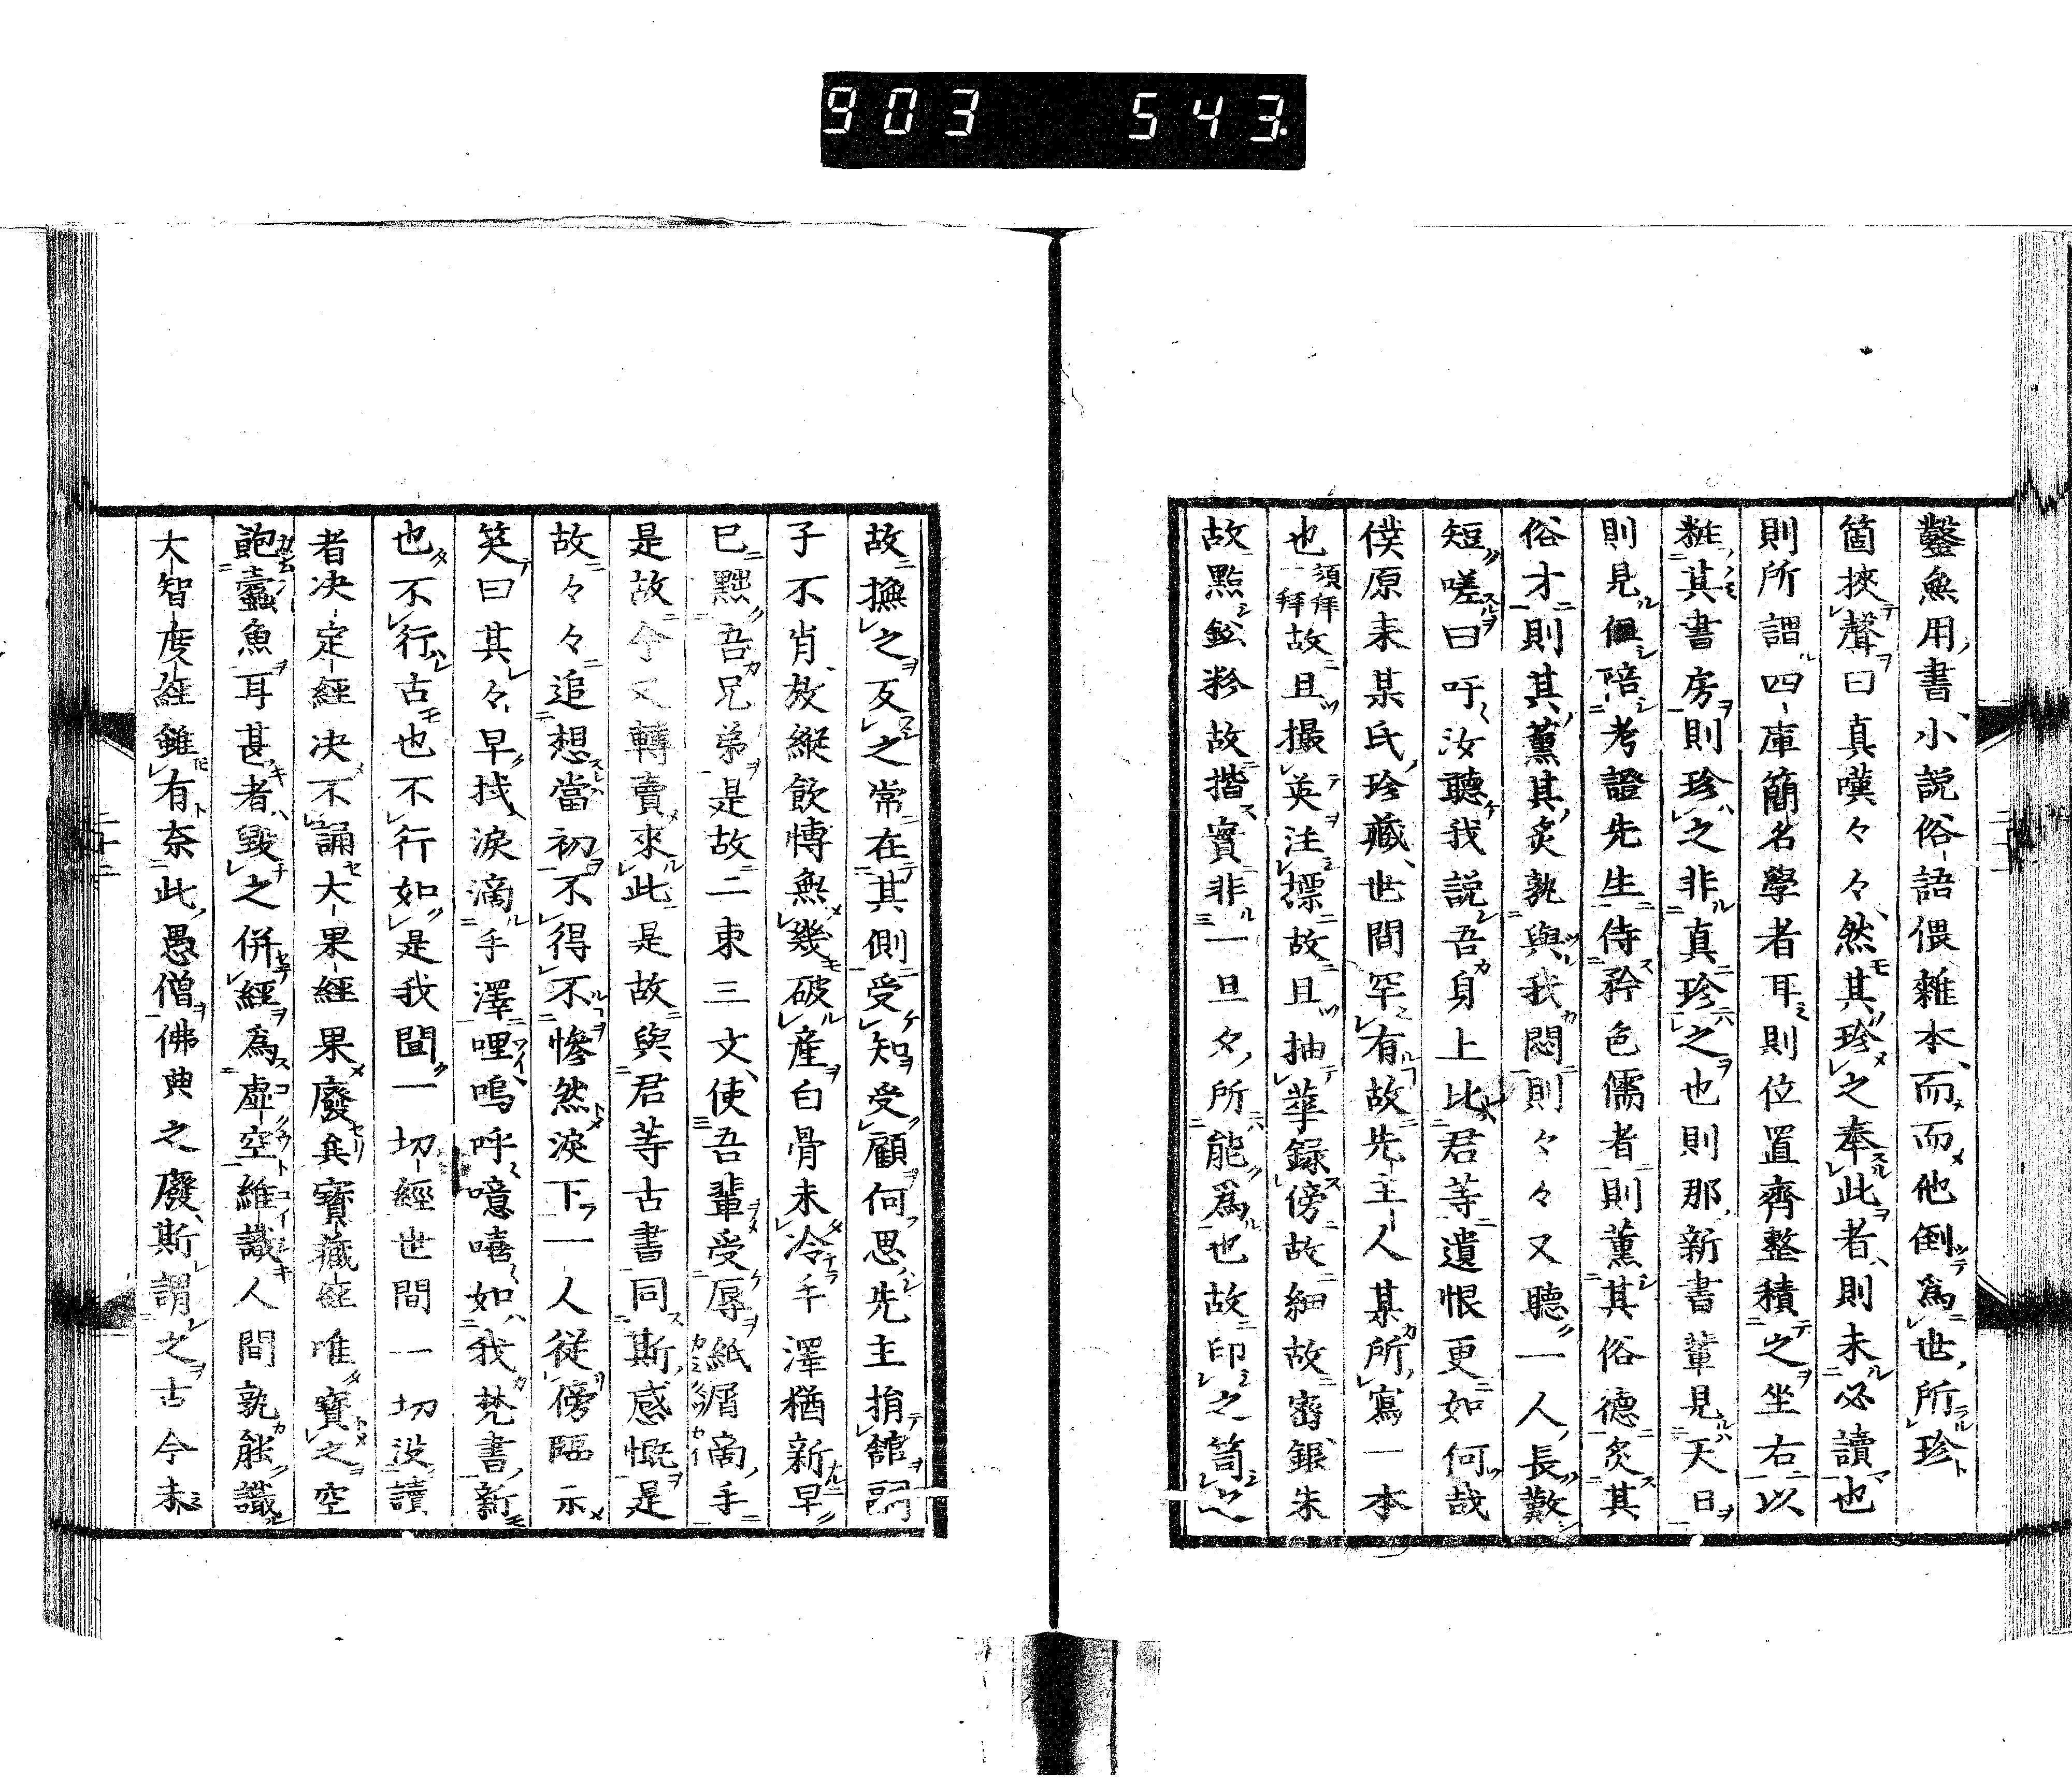 903 543.
鑿無用書小説俗語偎雜本而而他倒爲世所珍
箇挾聲曰真嘆々々然其珍之奉此者則未必讀也
則所謂四庫簡名學者耳則位置齊整積之坐右以
粧其書房則珍之非真珍之也則那新書輩見天日
則見俱陪考證先生侍矜色儒者則薫其俗德炙其
俗才則其薫其炙孰與我悶則々々又聽一人長歎
短嗟曰吁汝聽我説吾身上比君等遺恨更如何哉
僕原未某氏珍藏世間罕有故先主人某所寫一本
也 須拜一拜 故且撮英注標故且抽華録傍故細故密銀朱
故點鉛粉故揩實非一旦夕所能爲也故印之笥之
故撫之友之常在其側受知受顧何思先主捐舘詞
子不肖放縱飲愽無幾破產白骨未冷手澤猶新早
已黙吾兄弟是故二束三文使吾輩受辱紙屑啇手
是故今又轉賣來此是故與君等古書同斯感慨是
故々々追想當初不得不慘然淚下一人從傍臨示
笑曰其々早找淚滴手澤哩嗚呼噫嘻如我梵書新
也不行古也不行如是我聞一切經世間一切没讀
者決定經決不誦大果經果廢矣寶藏經唯寶之空
飽蠹魚耳甚者毀之併經爲虛空維識人間孰能識
大智度經雖有奈此愚僧佛典之廢斯謂之古今未